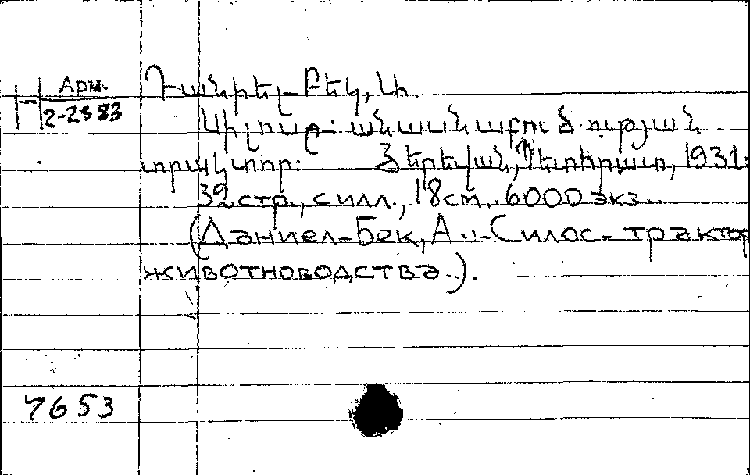 Арм.
2-2383
Դանիել-Բեկ, Ա.
Սիլոսը անասնաբուծության
տրակտոր: Յերեվան, Պետհրատ, 1931:
32 стр., с илл., 18 см. 6000 экз.
(Даниел-Бек, А. Силос-трактор
животноводства.).
7653